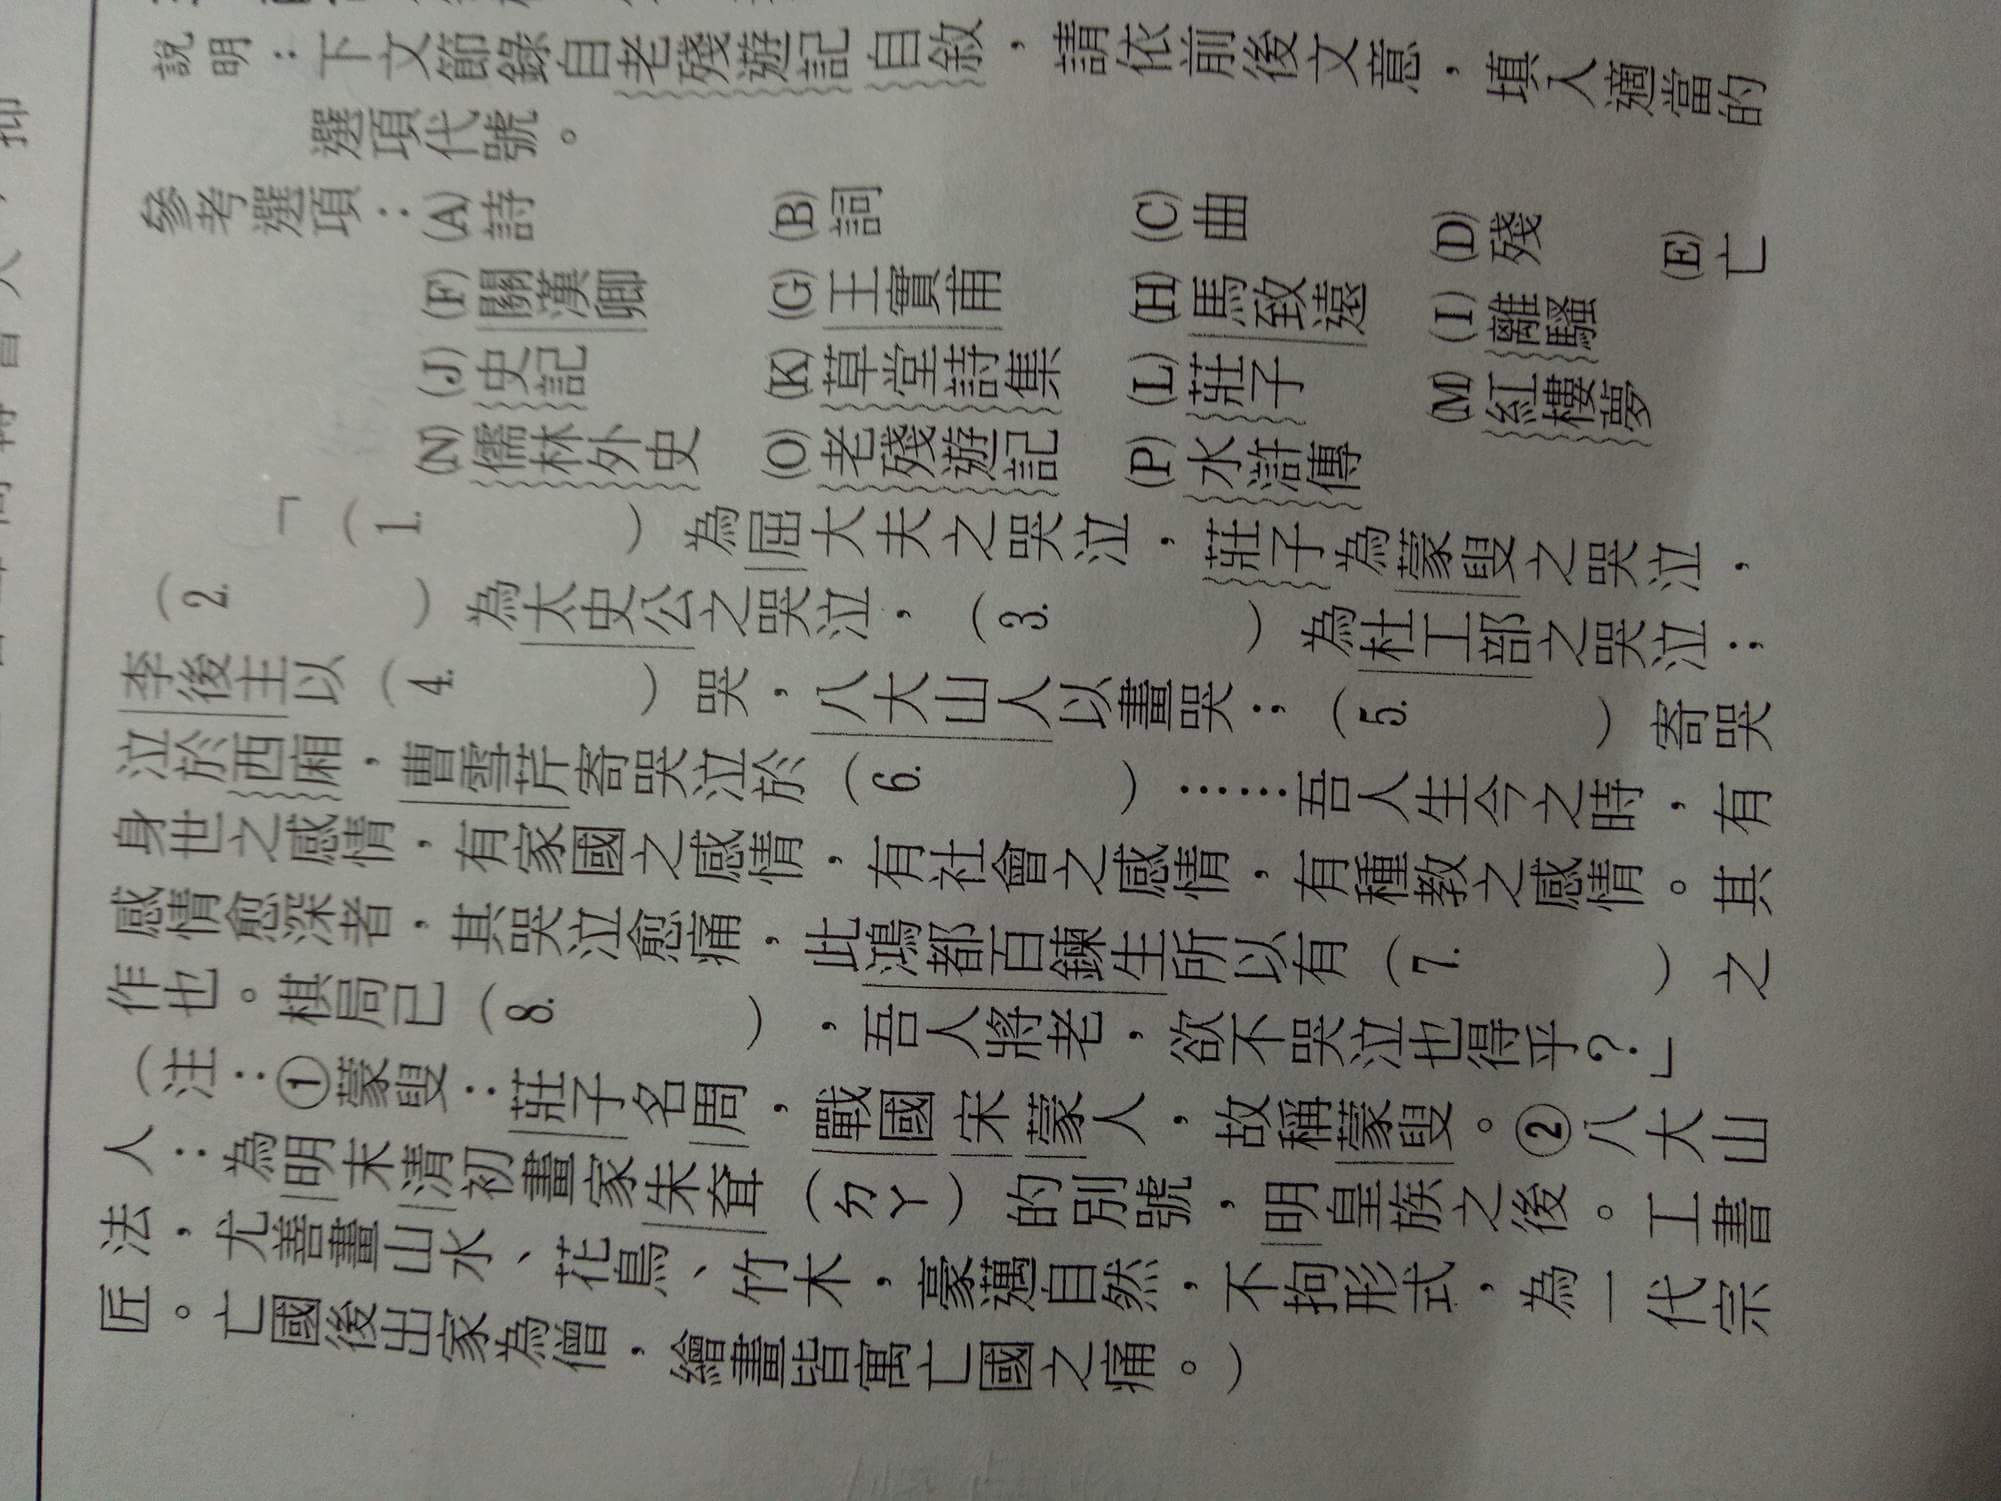 說明：下文節錄自老殘遊記自敘，請依前後文意，填入適當的
選項代號。
參考選項：(A)詩 (B)詞 (C)曲 (D)殘 (E)亡
(F)關漢卿 (G)王實甫 (H)馬致遠 (I)離騷
(J)史記 (K)草堂詩集 (L)莊子 (M)紅樓夢
(N)儒林外史 (O)老殘遊記 (P)水滸傳
「（1. ）為屈大夫之哭泣，莊子為蒙叟之哭泣，
（2. ）為太史公之哭泣，（3. ）為杜工部之哭泣；
李後主以（4. ）哭，八大山人以畫哭；（5. ）寄哭
泣於西廂，曹雪芹寄哭泣於（6. ）……吾人生今之時，有
身世之感情，有家國之感情，有社會之感情，有種教之感情。其
感情愈深者，其哭泣愈痛，此鴻都百鍊生所以有（7. ）之
作也。棋局已（8. ），吾人將老，欲不哭泣也得乎？」
（注：①蒙叟：莊子名周，戰國宋蒙人，故稱蒙叟。②八大山
人：為明末清初畫家朱耷（ㄉㄚ）的別號，明皇族之後。工書
法，尤善畫山水、花鳥、竹木，豪邁自然，不拘形式，為一代宗
匠。亡國後出家為僧，繪畫皆寓亡國之痛。）